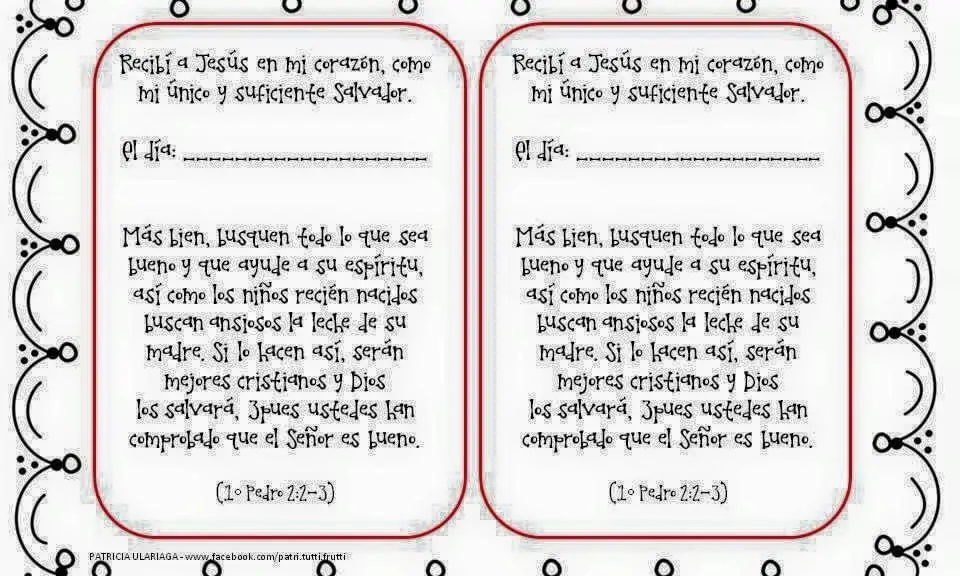 Recibí a Jesús en mi corazón, como
mi único y suficiente Salvador.
El día: ___________________
Más bien, busquen todo lo que sea
bueno y que ayude a su espíritu,
así como los niños recién nacidos
buscan ansiosos la leche de su
madre. Si lo hacen así, serán
mejores cristianos y Dios
los salvará, 3pues ustedes han
comprobado que el Señor es bueno.
(1º Pedro 2:2-3)
Recibí a Jesús en mi corazón, como
mi único y suficiente Salvador.
El día: ___________________
Más bien, busquen todo lo que sea
bueno y que ayude a su espíritu,
así como los niños recién nacidos
buscan ansiosos la leche de su
madre. Si lo hacen así, serán
mejores cristianos y Dios
los salvará, 3pues ustedes han
comprobado que el Señor es bueno.
(1º Pedro 2:2-3)
PATRICIA ULARIAGA - www.facebook.com/patri.tutti.frutti